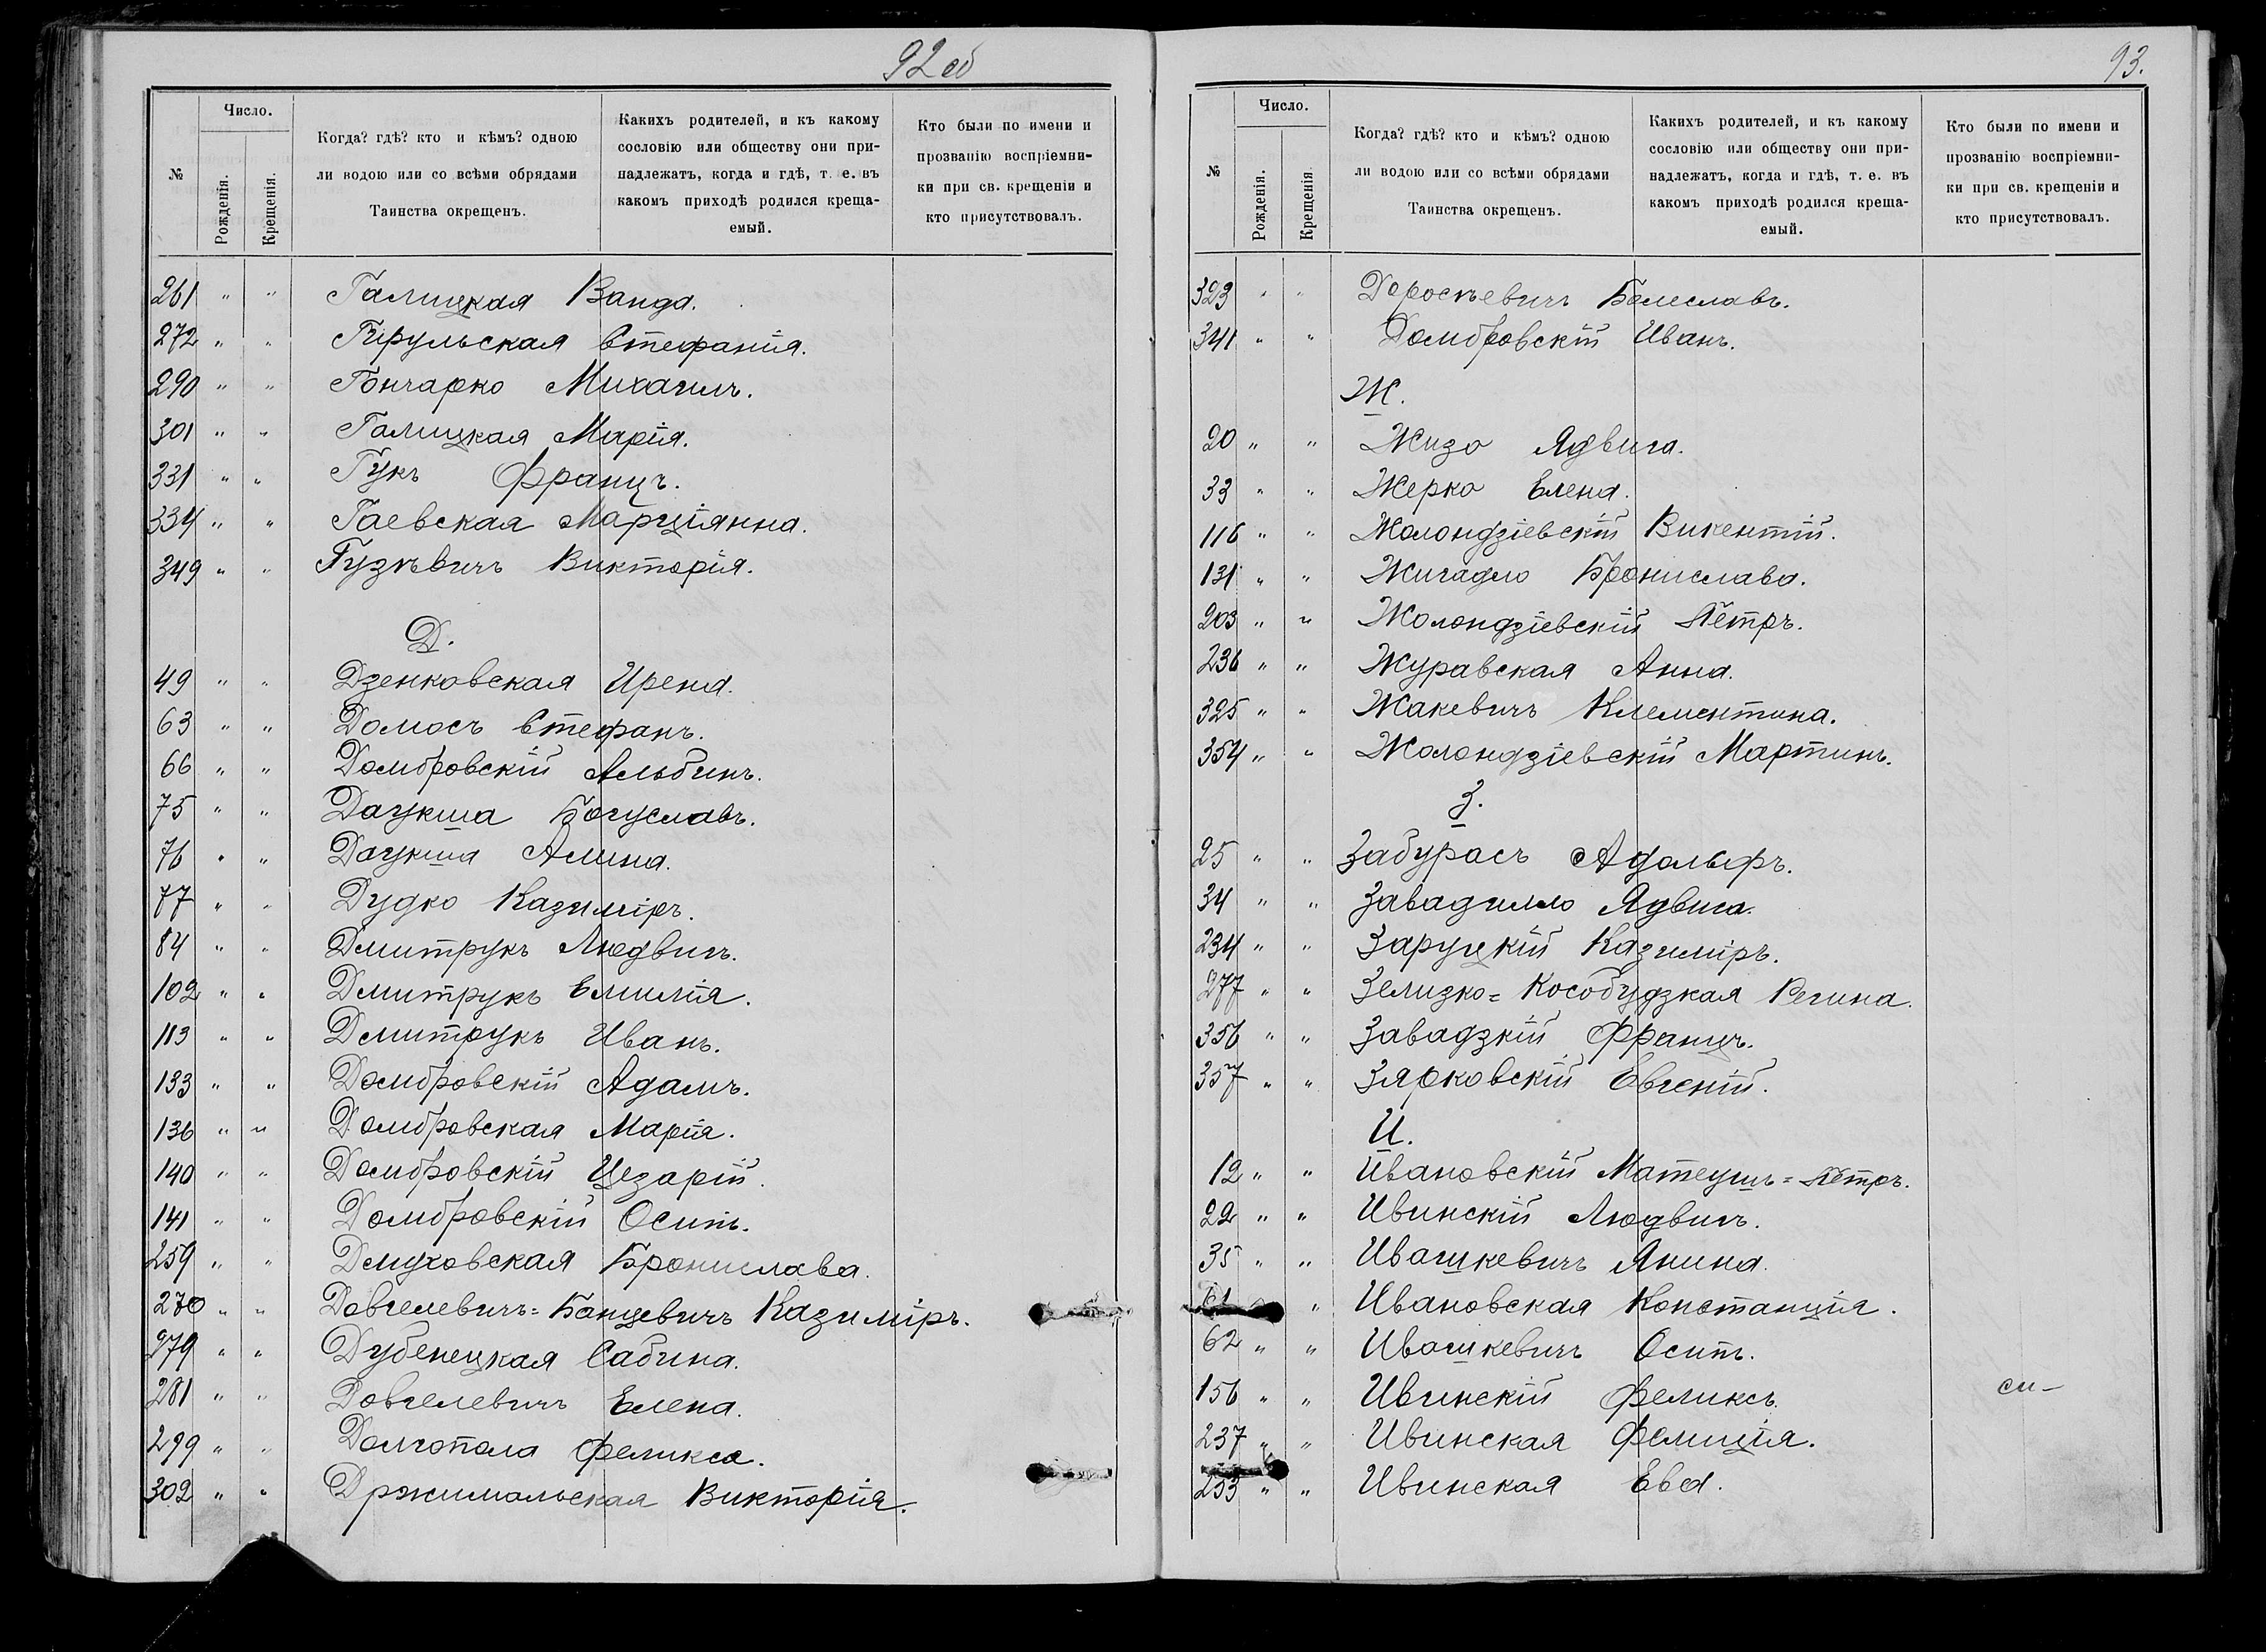 92 об
№
Число.
Рожденія.
Крещенія.
Когда? гдѣ? кто и кѣмъ? одною
ли водою или со всѣми обрядами
Таинства окрещенъ.
Какихъ родителей, и къ какому
сословію или обществу они при-
надлежатъ, когда и гдѣ, т. е. въ
какомъ приходѣ родился креща-
емый.
Кто были по имени и
прозванію воспріемни-
ки при св. крещеніи и
кто присутствовалъ.
261 " " Галицкая Ванда.
272 " " Гирульская Стефанія.
290 " " Гончарко Михаилъ.
301 " " Галицкая Марія.
331 " " Гукъ Францъ.
334 " " Гаевская Марціянна.
349 " " Гузѣвичъ Викторія.
Д.
49 " " Дзенковская Ирена.
63 " " Домосъ Стефанъ.
66 " " Домбровскій Альбинъ.
75 " " Даукша Богуславъ.
76 " " Даукша Алина.
77 " " Дудко Казиміръ.
84 " " Дмитрукъ Людвигъ.
102 " " Дмитрукъ Емилія.
113 " " Дмитрукъ Иванъ.
133 " " Домбровскій Адамъ.
136 " " Домбровская Марія.
140 " " Домбровскій Цезарій.
141 " " Домбровскій Осипъ.
259 " " Дмуховская Бронислава.
270 " " Довгелевичъ=Банцевичъ Казиміръ.
279 " " Дубенецкая Сабина.
281 " " Довгелевичъ Елена.
299 " " Долгопола Феликса.
302 " " Држимальская Викторія.
93.
№
Число.
Рожденія.
Крещенія.
Когда? гдѣ? кто и кѣмъ? одною
ли водою или со всѣми обрядами
Таинства окрещенъ.
Какихъ родителей, и къ какому
сословію или обществу они при-
надлежатъ, когда и гдѣ, т. е. въ
какомъ приходѣ родился креща-
емый.
Кто были по имени и
прозванію воспріемни-
ки при св. крещеніи и
кто присутствовалъ.
323 " " Дороскевичъ Болеславъ.
341 " " Домбровскій Иванъ.
Ж.
20 " " Жизо Ядвига.
33 " " Жерко Елена.
116 " " Жолондзіевскій Викентій.
131 " " Жигадло Бронислава.
203 " " Жолондзіевскій Петръ.
236 " " Журавская Анна.
325 " " Жакевичъ Клементина.
354 " " Жолондзіевскій Мартинъ.
З.
25 " " Забурасъ Адольфъ.
34 " " Завадилло Ядвига.
234 " " Заруцкій Казиміръ.
277 " " Зелизко=Кособудзкая Регина.
356 " " Завадзкій Францъ.
357 " " Зярковскій Евгеній.
И.
12 " " Ивановскій Матеушъ=Петръ.
22 " " Ивинскій Людвигъ.
35 " " Ивашкевичъ Янина.
" Ивановская Констанція.
62 " " Ивашкевичъ Осипъ.
156 " " Ивинскій Феликсъ.
237 " " Ивинская Фелиція.
253 " " Ивинская Ева.